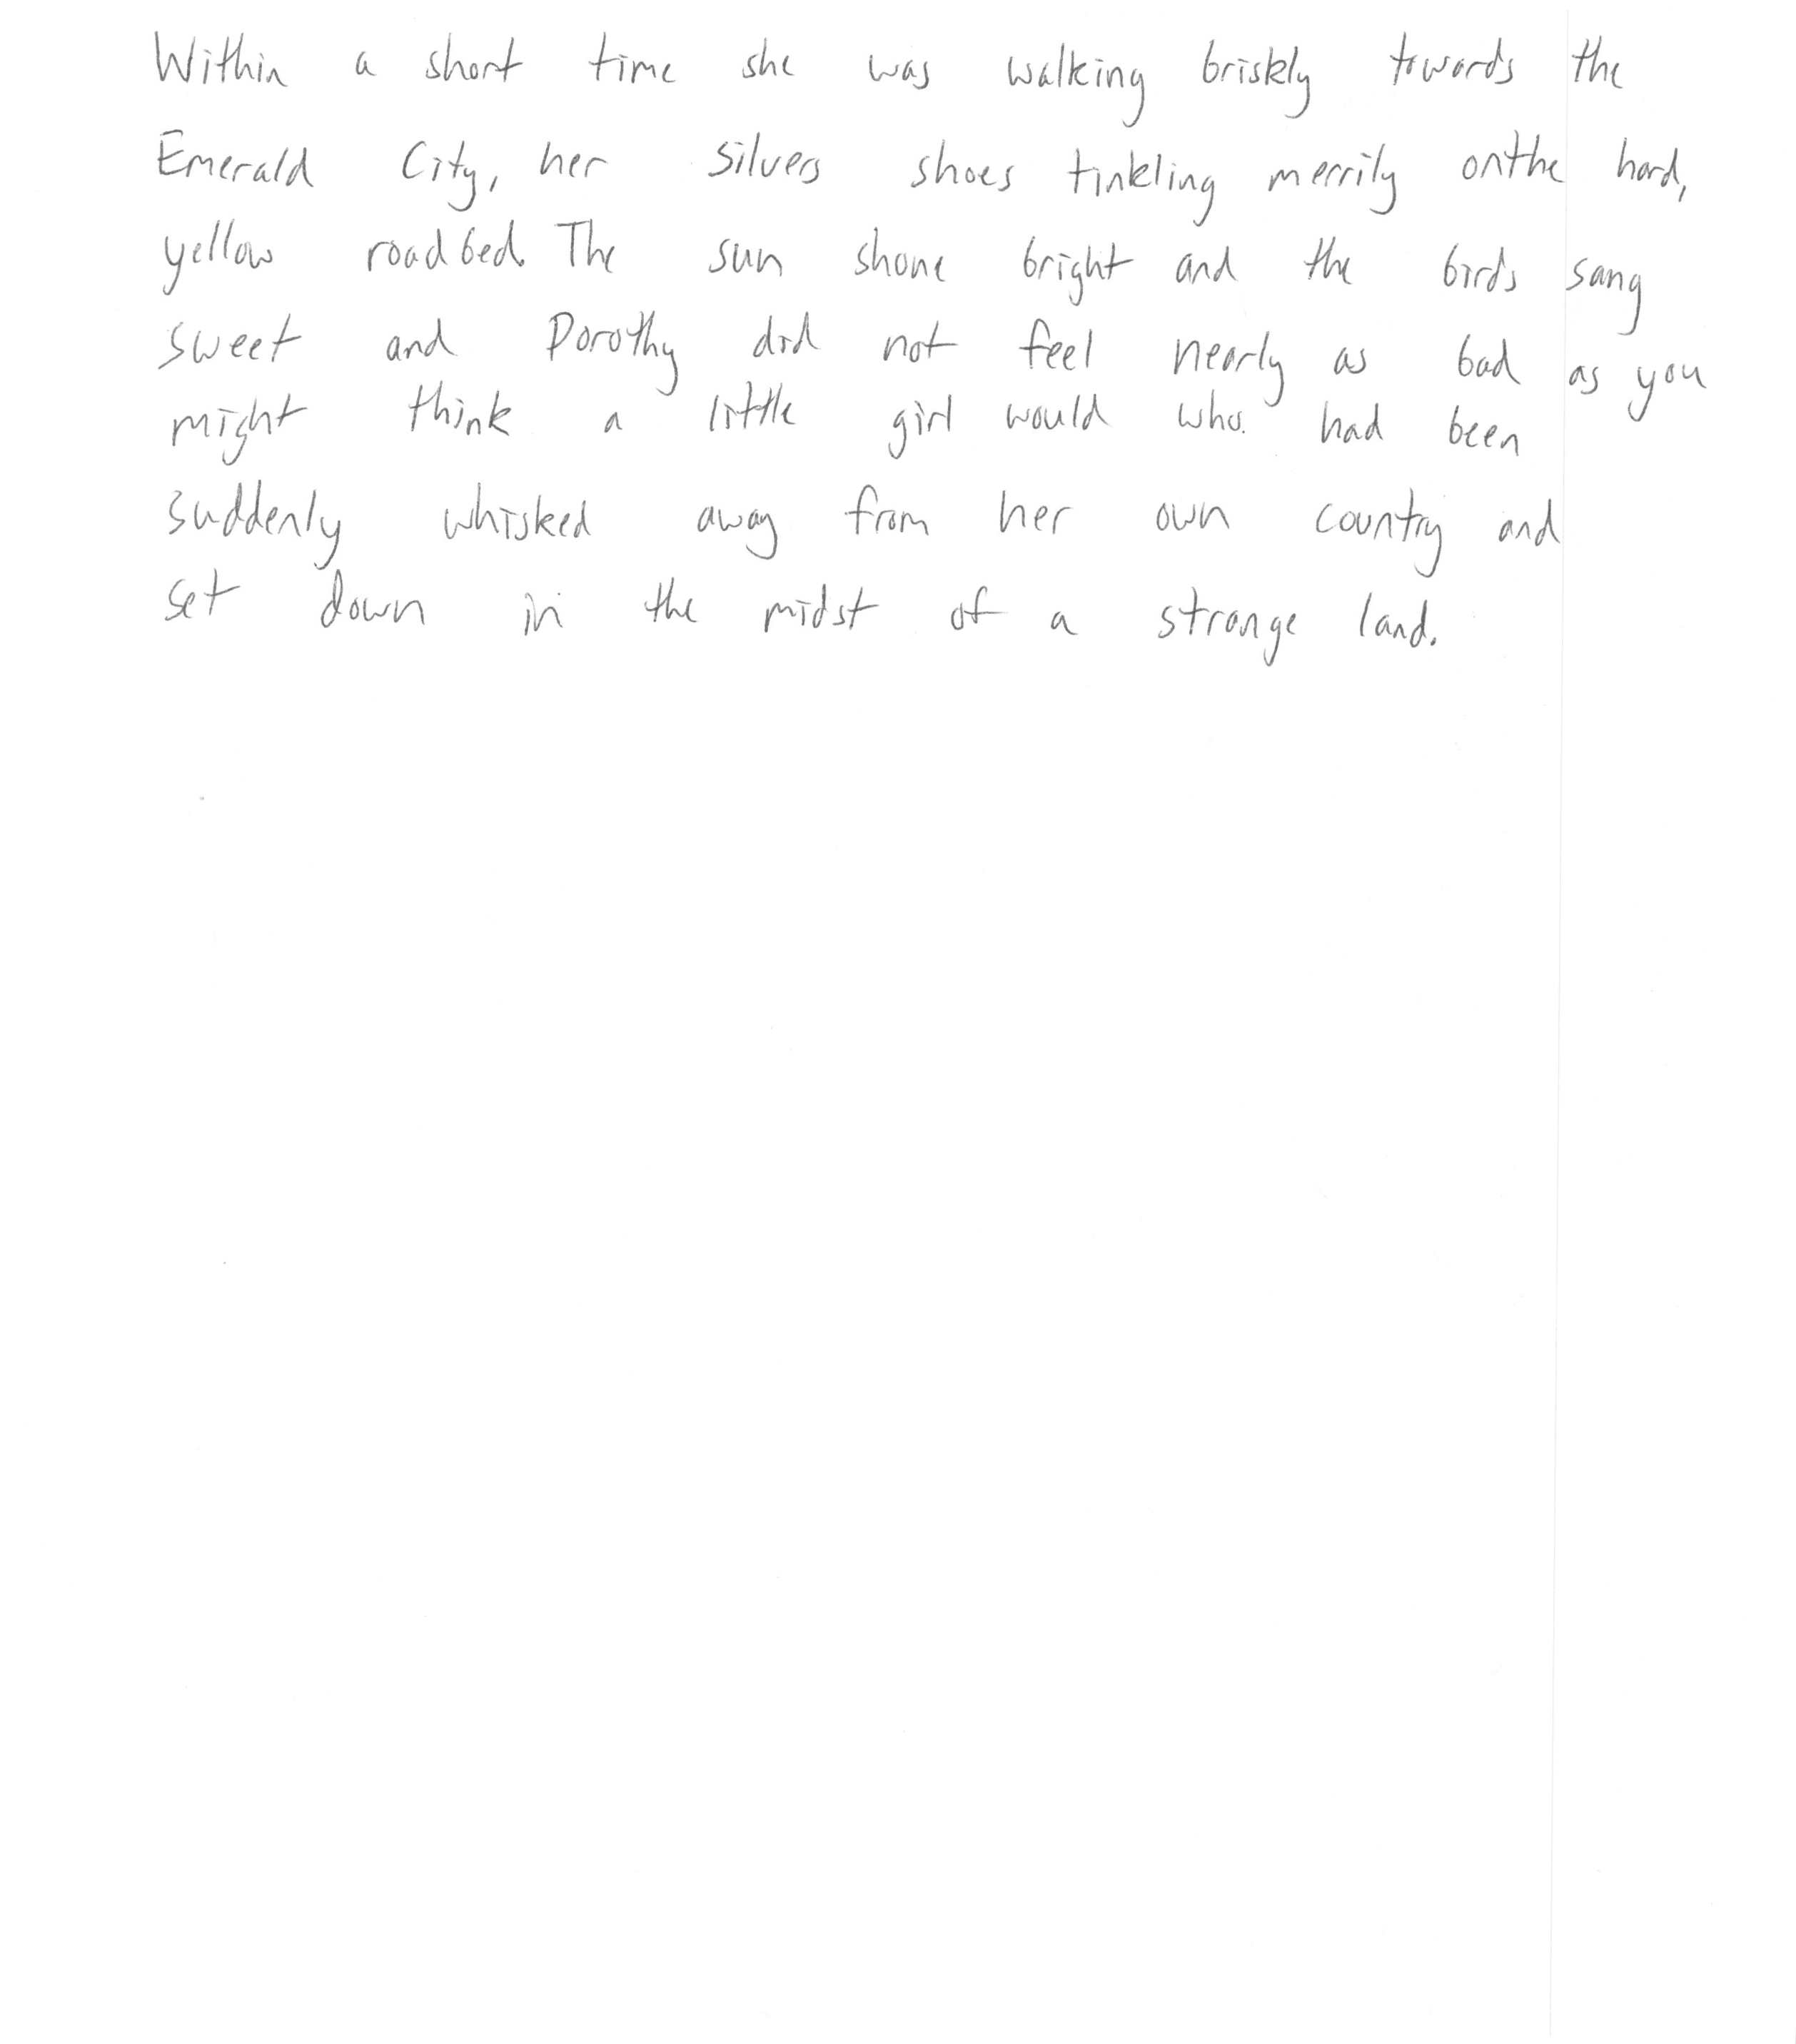 Within a short time she was walking briskly towards the
Emerald City, her silvers shoes tinkling merrily onthe hard,
yellow roadbed. The sun shone bright and the birds sang
sweet and Dorothy did not feel nearly as bad as you
might think a little girl would who. had been
suddenly whisked away from her own country and
set down in the midst of a strange land.